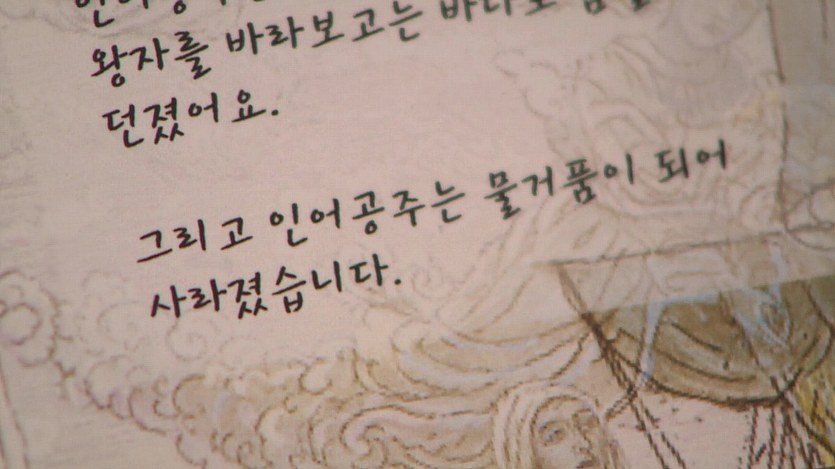 왕자를 바라보고는 바다로
던졌어요.
그리고 인어공주는 물거품이 되어
사라졌습니다.